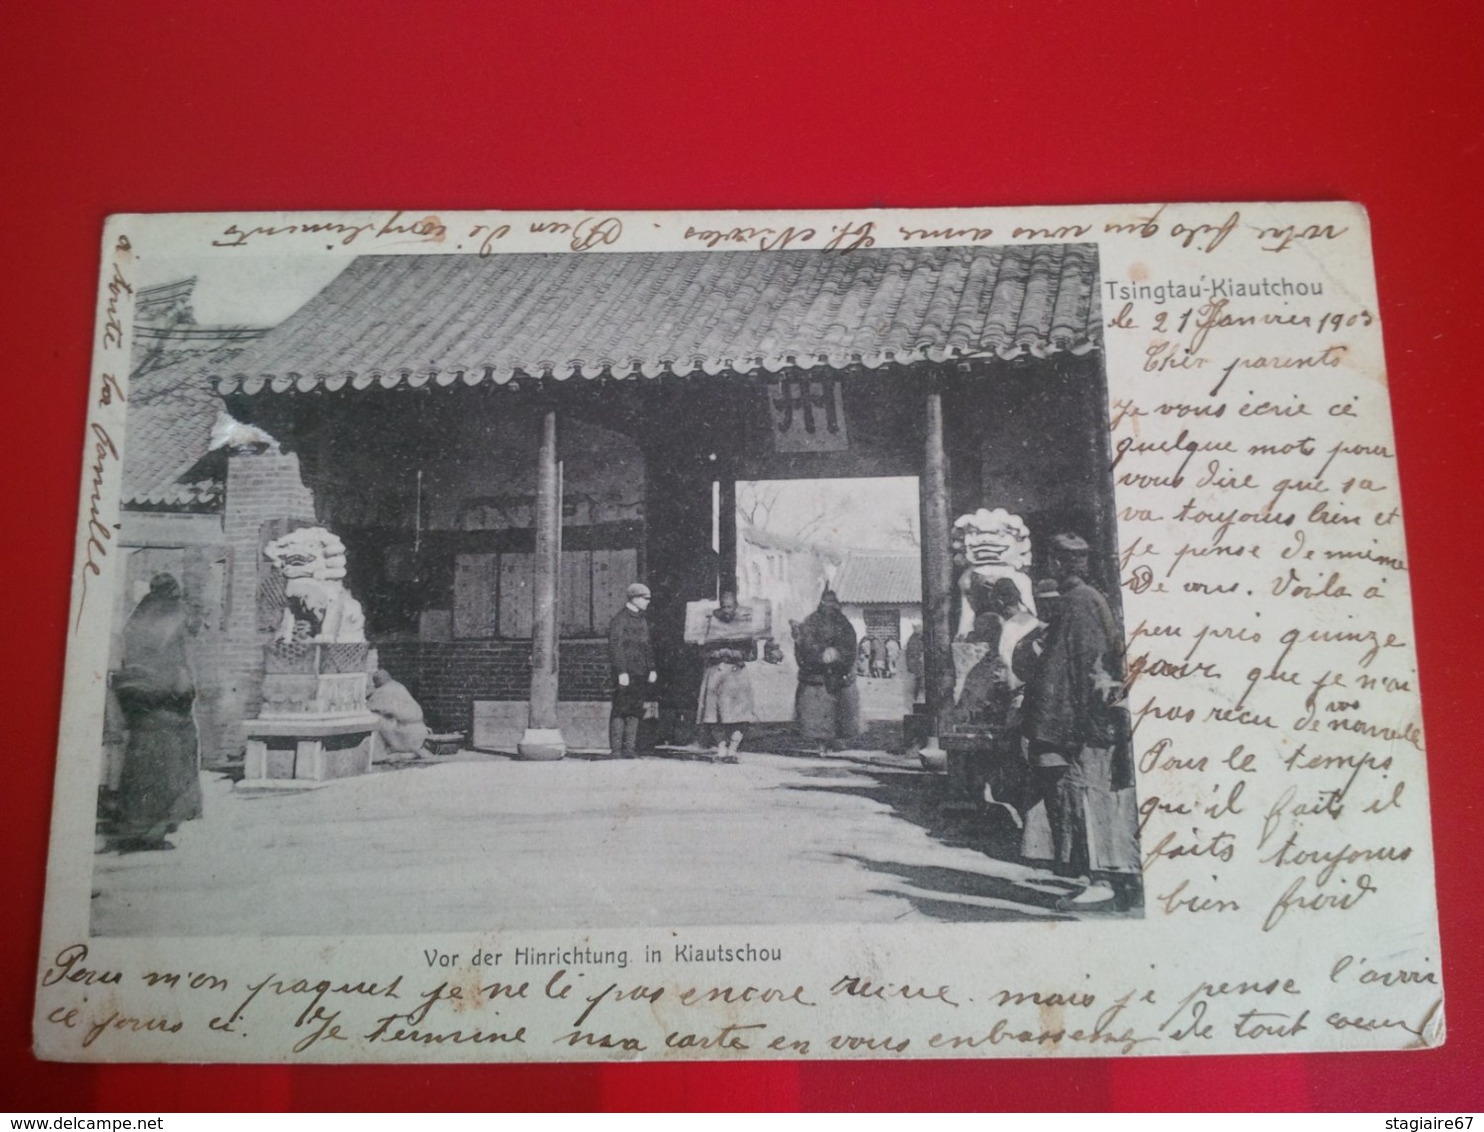 Tsingtau-Kiautchou
le 21 Janvier 1903
Cher parents
Je vous écrie cé
quelque mots pour
vous dire que sa
va toujours bien et
je pense de même
De vous. Voila à
peu près quinze
jour que je n'ai
pas recu de vos nouvelle
Pour le temps
qu'il faits il
faits toujours
bien froid
州
Vor der Hinrichtung in Kiautschou
Pour m'on paquet je ne lé pas encore recue. mais je pense l'avoir
cé jours ci. Je termine ma carte en vous enbrassenz de tout coeur
votre fils qui vous aime Nicolas. Bien de compliments
à toute la famille
stagiaire67